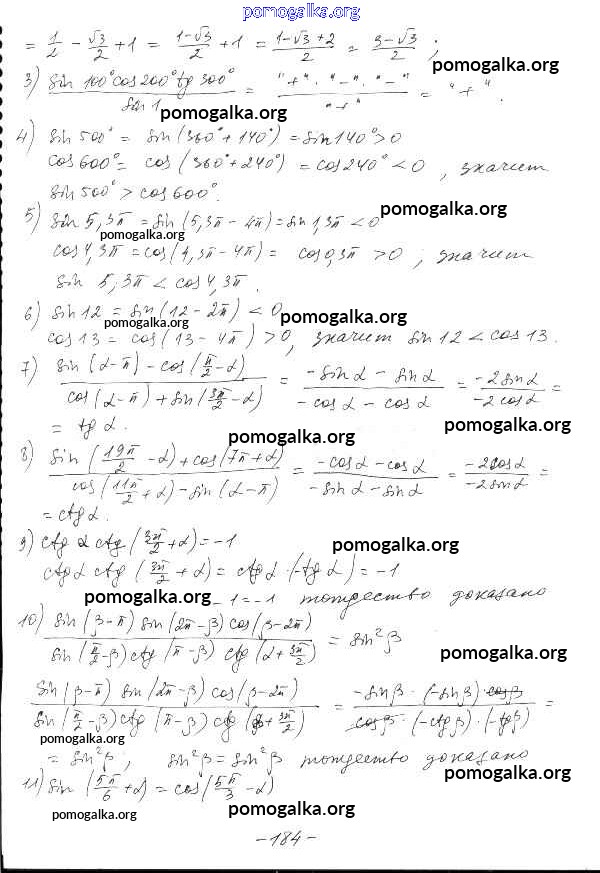 pomogalka.org
= 1/2 - √3/2 + 1 = (1-√3)/2 + 1 = (1-√3+2)/2 = (3-√3)/2 ;
pomogalka.org
3) (sin 100° cos 200° tg 300°)/(sin 1) = ("+" · "-" · "-")/("+") = "+" .
pomogalka.org
4) sin 500° = sin (360° + 140°) = sin 140° > 0
cos 600° = cos (360° + 240°) = cos 240° < 0 , значит
sin 500° > cos 600°.
pomogalka.org
5) sin 5,3π = sin (5,3π - 4π) = sin 1,3π < 0
pomogalka.org
cos 4,3π = cos (4,3π - 4π) = cos 0,3π > 0 ; значит
sin 5,3π < cos 4,3π .
6) sin 12 = sin (12 - 2π) < 0
pomogalka.org pomogalka.org
cos 13 = cos (13 - 4π) > 0, значит sin 12 < cos 13.
7) (sin (α - π) - cos (π/2 - α))/(cos (α - π) + sin (3π/2 - α)) = (-sin α - sin α)/(-cos α - cos α) = (-2 sin α)/(-2 cos α) =
= tg α .
pomogalka.org pomogalka.org
8) (sin (19π/2 - α) + cos (7π + α))/(cos (11π/2 + α) - sin (α - π)) = (-cos α - cos α)/(-sin α - sin α) = (-2 cos α)/(-2 sin α) =
= ctg α .
9) ctg α ctg (3π/2 + α) = -1
pomogalka.org
ctg α ctg (3π/2 + α) = ctg α · (-tg α) = -1
pomogalka.org -1 = -1 тождество доказано
10) (sin (β - π) sin (2π - β) cos (β - 2π))/(sin (π/2 - β) ctg (π - β) ctg (α + 3π/2)) = sin² β
pomogalka.org
(sin (β - π) sin (2π - β) cos (β - 2π))/(sin (π/2 - β) ctg (π - β) ctg (β + 3π/2)) = (-sin β · (-sin β) cos β)/(cos β · (-ctg β) · (-tg β)) =
pomogalka.org
= sin² β , sin² β = sin² β тождество доказано
pomogalka.org
11) sin (5π/6 + α) = cos (5π/3 - α)
pomogalka.org pomogalka.org
- 184 -